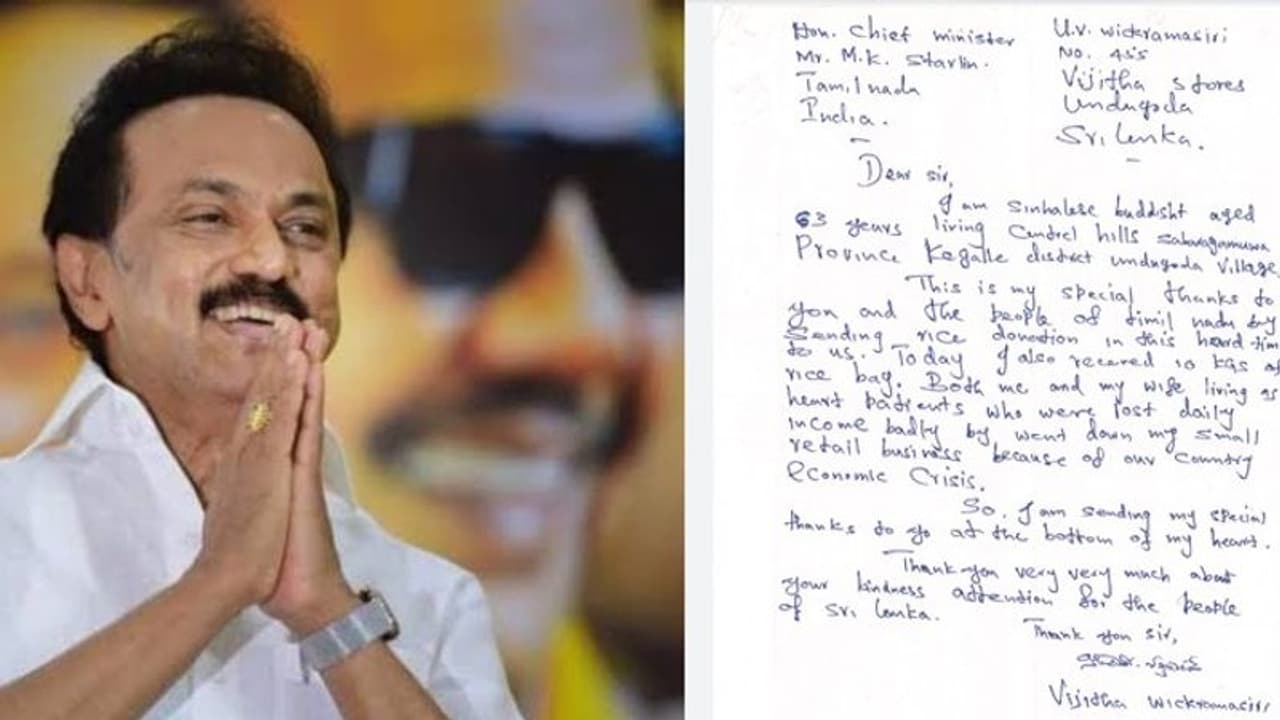 Hon. Chief minister
Mr. M.K. Starlin.
Tamil nadu
India.
U.V. wickramasiri
No. 455
Vijitha stores
Undugoda
Sri Lanka.
Dear sir,
I am sinhalese buddisht aged
63 years living Centrel hills sabaragamuwa
Province Kegalle district undugoda village,
This is my special thanks to
you and the people of timil nadu by
Sending rice donetion in this heard tim
to us. Today I also receved 10 KGs of
rice bag. Both me and my wife living as
heart patients who were lost daily
income badly by went down my small
retail business because of our country
economic crisis.
So, I am sending my special
thanks to yo at the bottom of my heart.
Thank you very very much about
your kindness attention for the people
of Sri Lanka.
Thank you Sir,
Vijitha wickramasiri